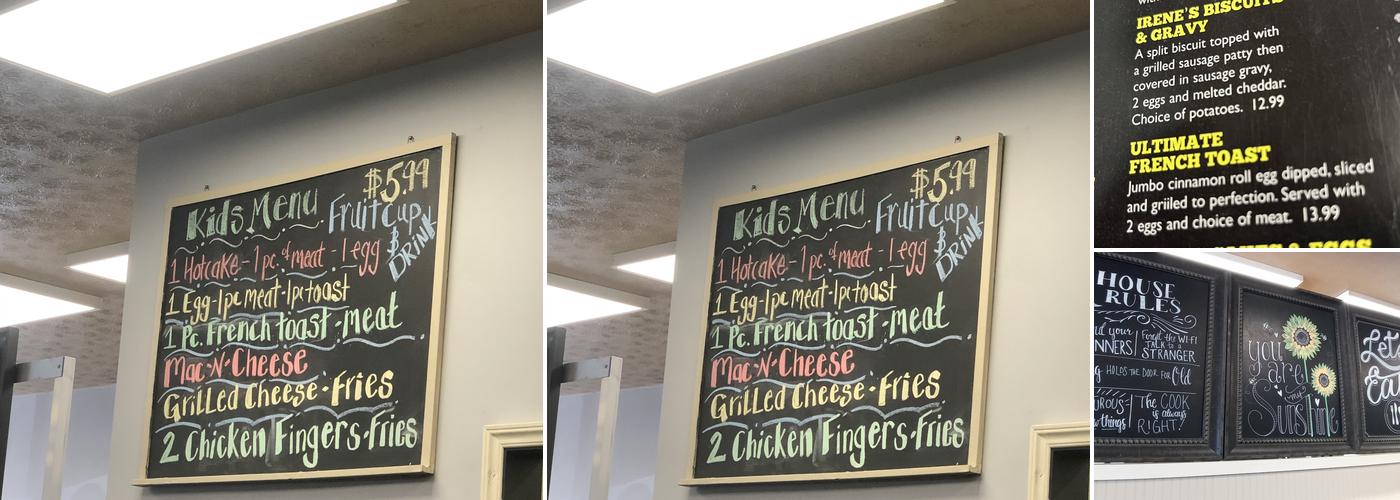 Kids Menu
$5.99
Fruit Cup
& DRINK
1 Hotcake - 1 pc. of meat - 1 egg
1 Egg - 1pc meat - 1pc toast
1 Pc. French toast - meat
Mac-N-Cheese
Grilled Cheese - Fries
2 Chicken Fingers-fries
Kids Menu
$5.99
Fruit Cup
& DRINK
1 Hotcake - 1 pc. of meat - 1 egg
1 Egg - 1pc meat - 1pc toast
1 Pc. French toast - meat
Mac-N-Cheese
Grilled Cheese - Fries
2 Chicken Fingers-fries
IRENE'S BISCUITS
& GRAVY
A split biscuit topped with
a grilled sausage patty then
covered in sausage gravy,
2 eggs and melted cheddar.
Choice of potatoes. 12.99
ULTIMATE
FRENCH TOAST
Jumbo cinnamon roll egg dipped, sliced
and griiled to perfection. Served with
2 eggs and choice of meat. 13.99
& EGGS
HOUSE
RULES
your
Forget the WI-FI
TALK to a
STRANGER
HOLDS THE DOOR FOR Old
The COOK
is always
RIGHT!
you
are
my
Sunshine